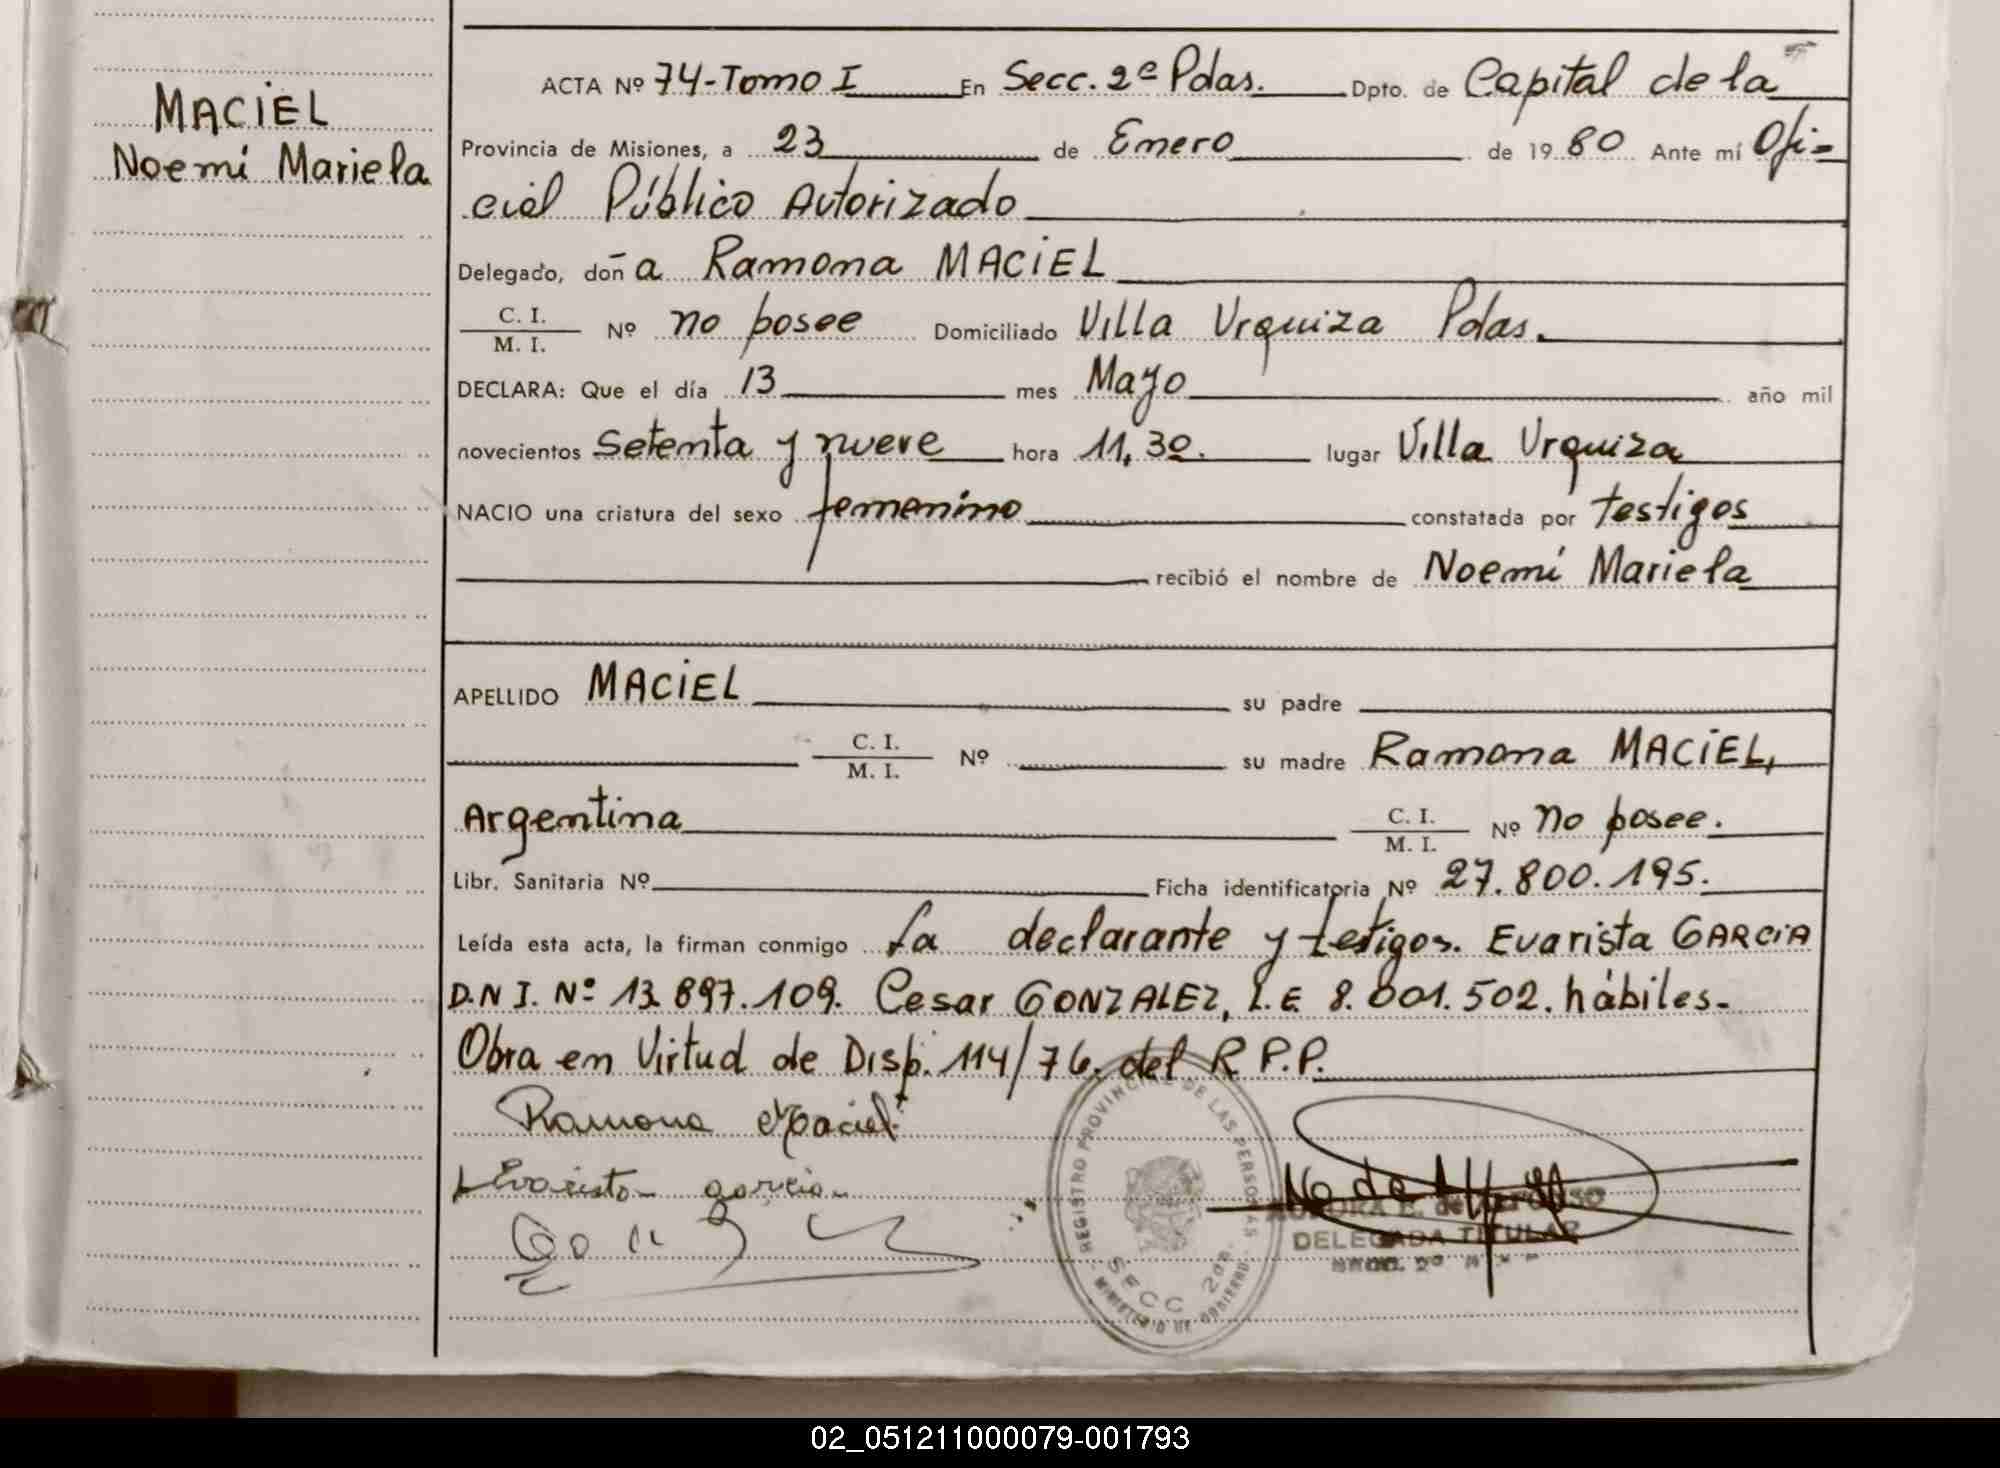 MACIEL
Noemí Mariela
ACTA Nº 74-Tomo I En Secc. 2ª Pdas. Dpto. de Capital de la
Provincia de Misiones, a 23 de Enero de 1980 Ante mí Ofi-
cial Público Autorizado
Delegado, doña Ramona MACIEL
C. I.
M. I. Nº no posee Domiciliado Villa Urquiza Pdas.
DECLARA: Que el día 13 mes Mayo año mil
novecientos setenta y nueve hora 11,30. lugar Villa Urquiza
NACIO una criatura del sexo femenino constatada por testigos
recibió el nombre de Noemí Mariela
APELLIDO MACIEL su padre
C. I.
M. I. Nº su madre Ramona MACIEL,
Argentina C. I.
M. I. Nº no posee.
Libr. Sanitaria Nº Ficha identificatoria Nº 27.800.195.
Leída esta acta, la firman conmigo la declarante y testigos. Evarista GARCIA
D.N I. Nº 13.897.109. Cesar GONZALEZ, L.E 8.001.502. hábiles-
Obra en Virtud de Disp. 114/76. del R P.P.
Ramona Maciel
Evarista garcia
REGISTRO PROVINCIAL DE LAS PERSONAS
SECC 2da.
MINISTERIO DE GOBIERNO
AURORA E. de ALFONSO
DELEGADA TITULAR
02_051211000079-001793